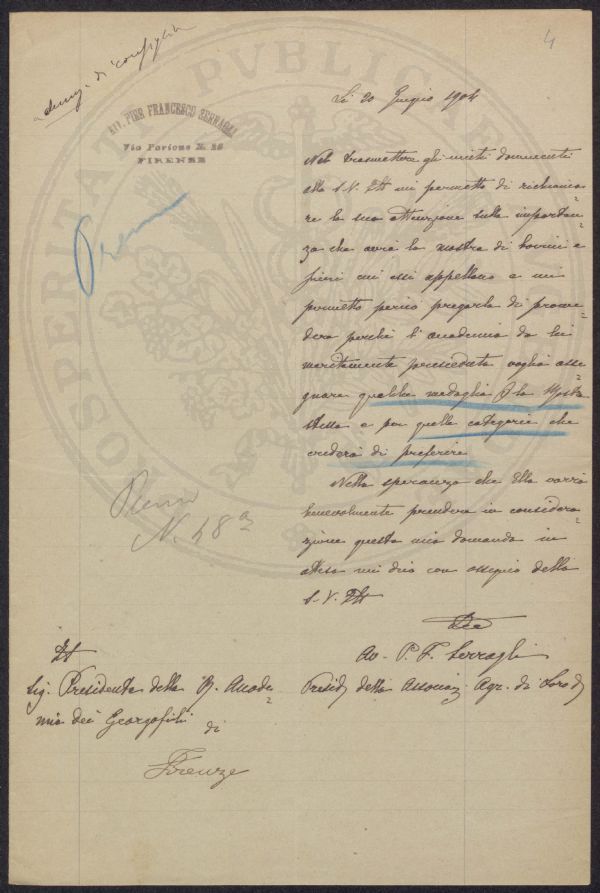 adunza di consiglio
4
AVV. PIER FRANCESCO SERRAGLI
Via Parione N. 28
FIRENZE
Premi
Li 20 Giugno 1904
Nel trasmettere gli uniti documenti
alla S.V. Ill mi permetto di richiama=
re la sua attenzione sulla importan=
za che avrà la mostra di bovini e
suini cui essi appellano e mi
permetto perciò pregarla di provve=
dere perché l'accademia da lei
meritamente presieduta voglia asse=
gnare qualche medaglia p la Mostra
stessa e per quelle categorie che
crederà di preferire
Nella speranza che Ella vorrà
benevolmente prendere in considera=
zione questa mia domanda in
attesa mi dico con ossequio della
S. V. Ill
Av. P. F. Serragli
Presid della Associaz Agr. di
Premi
N. 48 a
Ill
Sig. Presidente della R. Accade=
mia dei Georgofili
di
Firenze
PROSPERITATI PVBLICAE